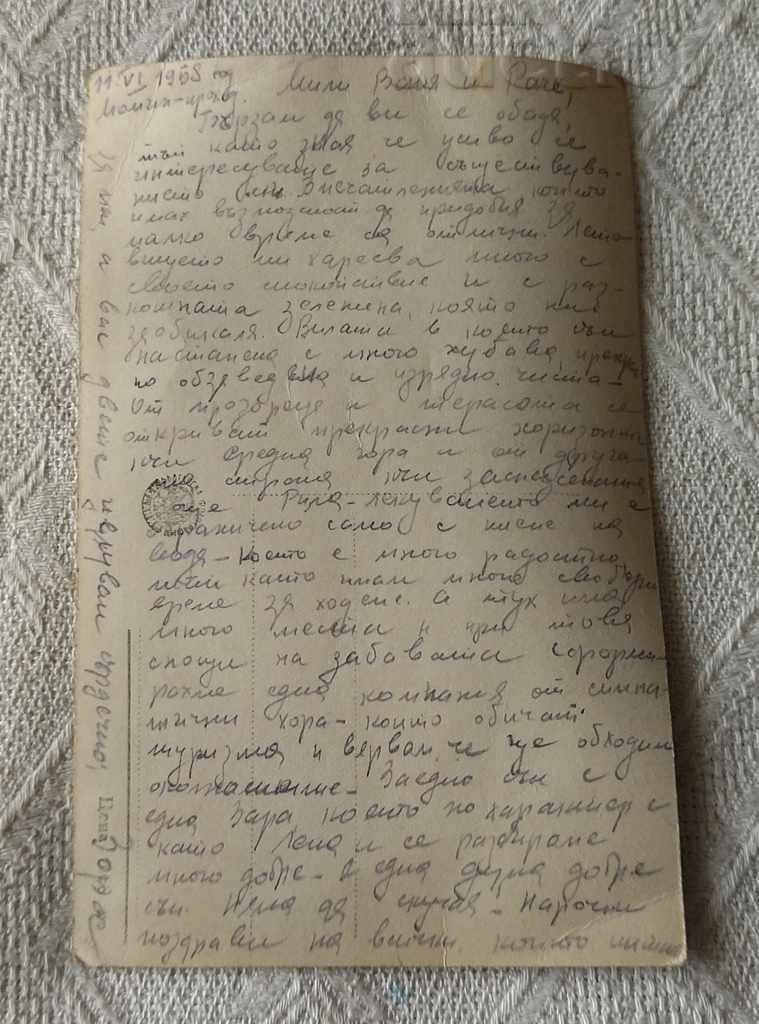 11 VI 1958 год
Момин-проход.
Мили Ваня и Раче,
Бързам да ви се обадя,
тъй като зная че живо се
интересувате за съществува-
нието ми. Впечатленията които
имах възможност да придобия за
малко време са отлични. Лето-
вището ми харесва много с
своето спокойствие и с раз-
кошната зеленина, която ни
заобикаля. Вилата в която съм
настанена е много хубава,
но обзаведена и изрядно чиста-
От прозореца и терасата се
откриват прекрасни хоризонти
към Средна гора и от друга-
та страна към заснежената
още Рила-Лекуването ми е
само с пиене на
вода-което е много радостно
тъй като имам много свободно
време за ходене. А тук има
много места и при това
снощи на забавата сформи-
рахме една компания от симпа-
тични хора-които обичат
туризма и вервам че ще обходим
околностите- Заедно съм с
една Зара, която по характер е
като Лена и се разбираме
много добре- С една дума добре
съм. Няма да скучая- Нарочни
поздрави на всички, които
за мен, а вас двете целувам сърдечно,
Цена